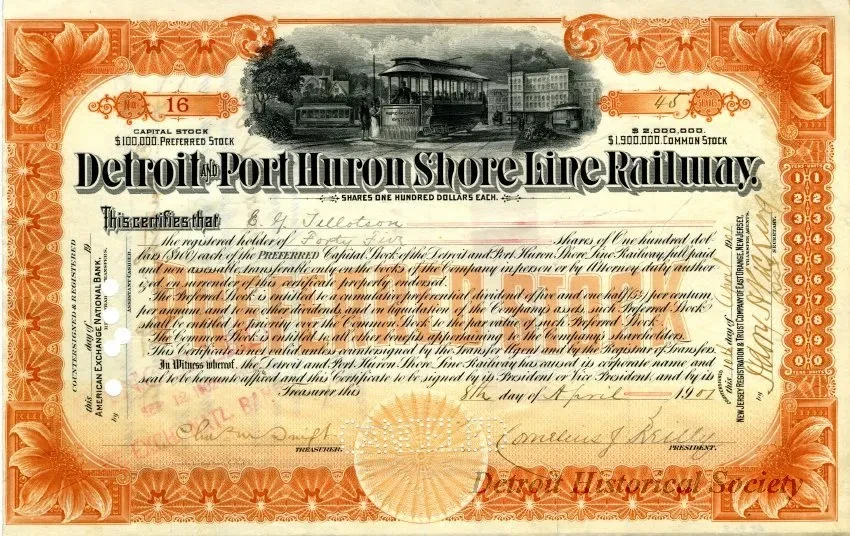 No. 16
45 SHARES
CAPITAL STOCK
$100,000. PREFERRED STOCK
$2,000,000.
$1,900,000. COMMON STOCK
Detroit AND Port Huron Shore Line Railway.
SHARES ONE HUNDRED DOLLARS EACH.
This certifies that E. G. Tillotson
the registered holder of Forty Five Shares of One hundred dol-
lars ($100) each of the PREFERRED Capital Stock of the Detroit and Port Huron Shore Line Railway, full paid
and non assessable, transferable only on the books of the Company in person or by Attorney duly author-
ized on surrender of this certificate properly endorsed.
The Preferred Stock is entitled to a cumulative preferential dividend of five and one half (5½) per centum
per annum, and no other dividends, and on liquidation of the Company's assets, such Preferred Stock
shall be entitled to priority over the Common Stock to the par value of such Preferred Stock.
The Common Stock is entitled to all other benefits appertaining to the Company's shareholders.
This Certificate is not valid unless countersigned by the Transfer Agent and by the Registrar of Transfers.
In Witness whereof, the Detroit and Port Huron Shore Line Railway has caused its corporate name and
seal to be hereunto affixed and this Certificate to be signed by its President or Vice President and by its
Treasurer this 8th day of April 1901
TREASURER.
Cornelius J. Reilly
PRESIDENT.
COUNTERSIGNED & REGISTERED
this day of 19
AMERICAN EXCHANGE NATIONAL BANK,
by
NEW JERSEY REGISTRATION & TRUST COMPANY OF EAST ORANGE, NEW JERSEY,
SECRETARY.
PREFERRED STOCK
CANCELLED
Detroit Historical Society